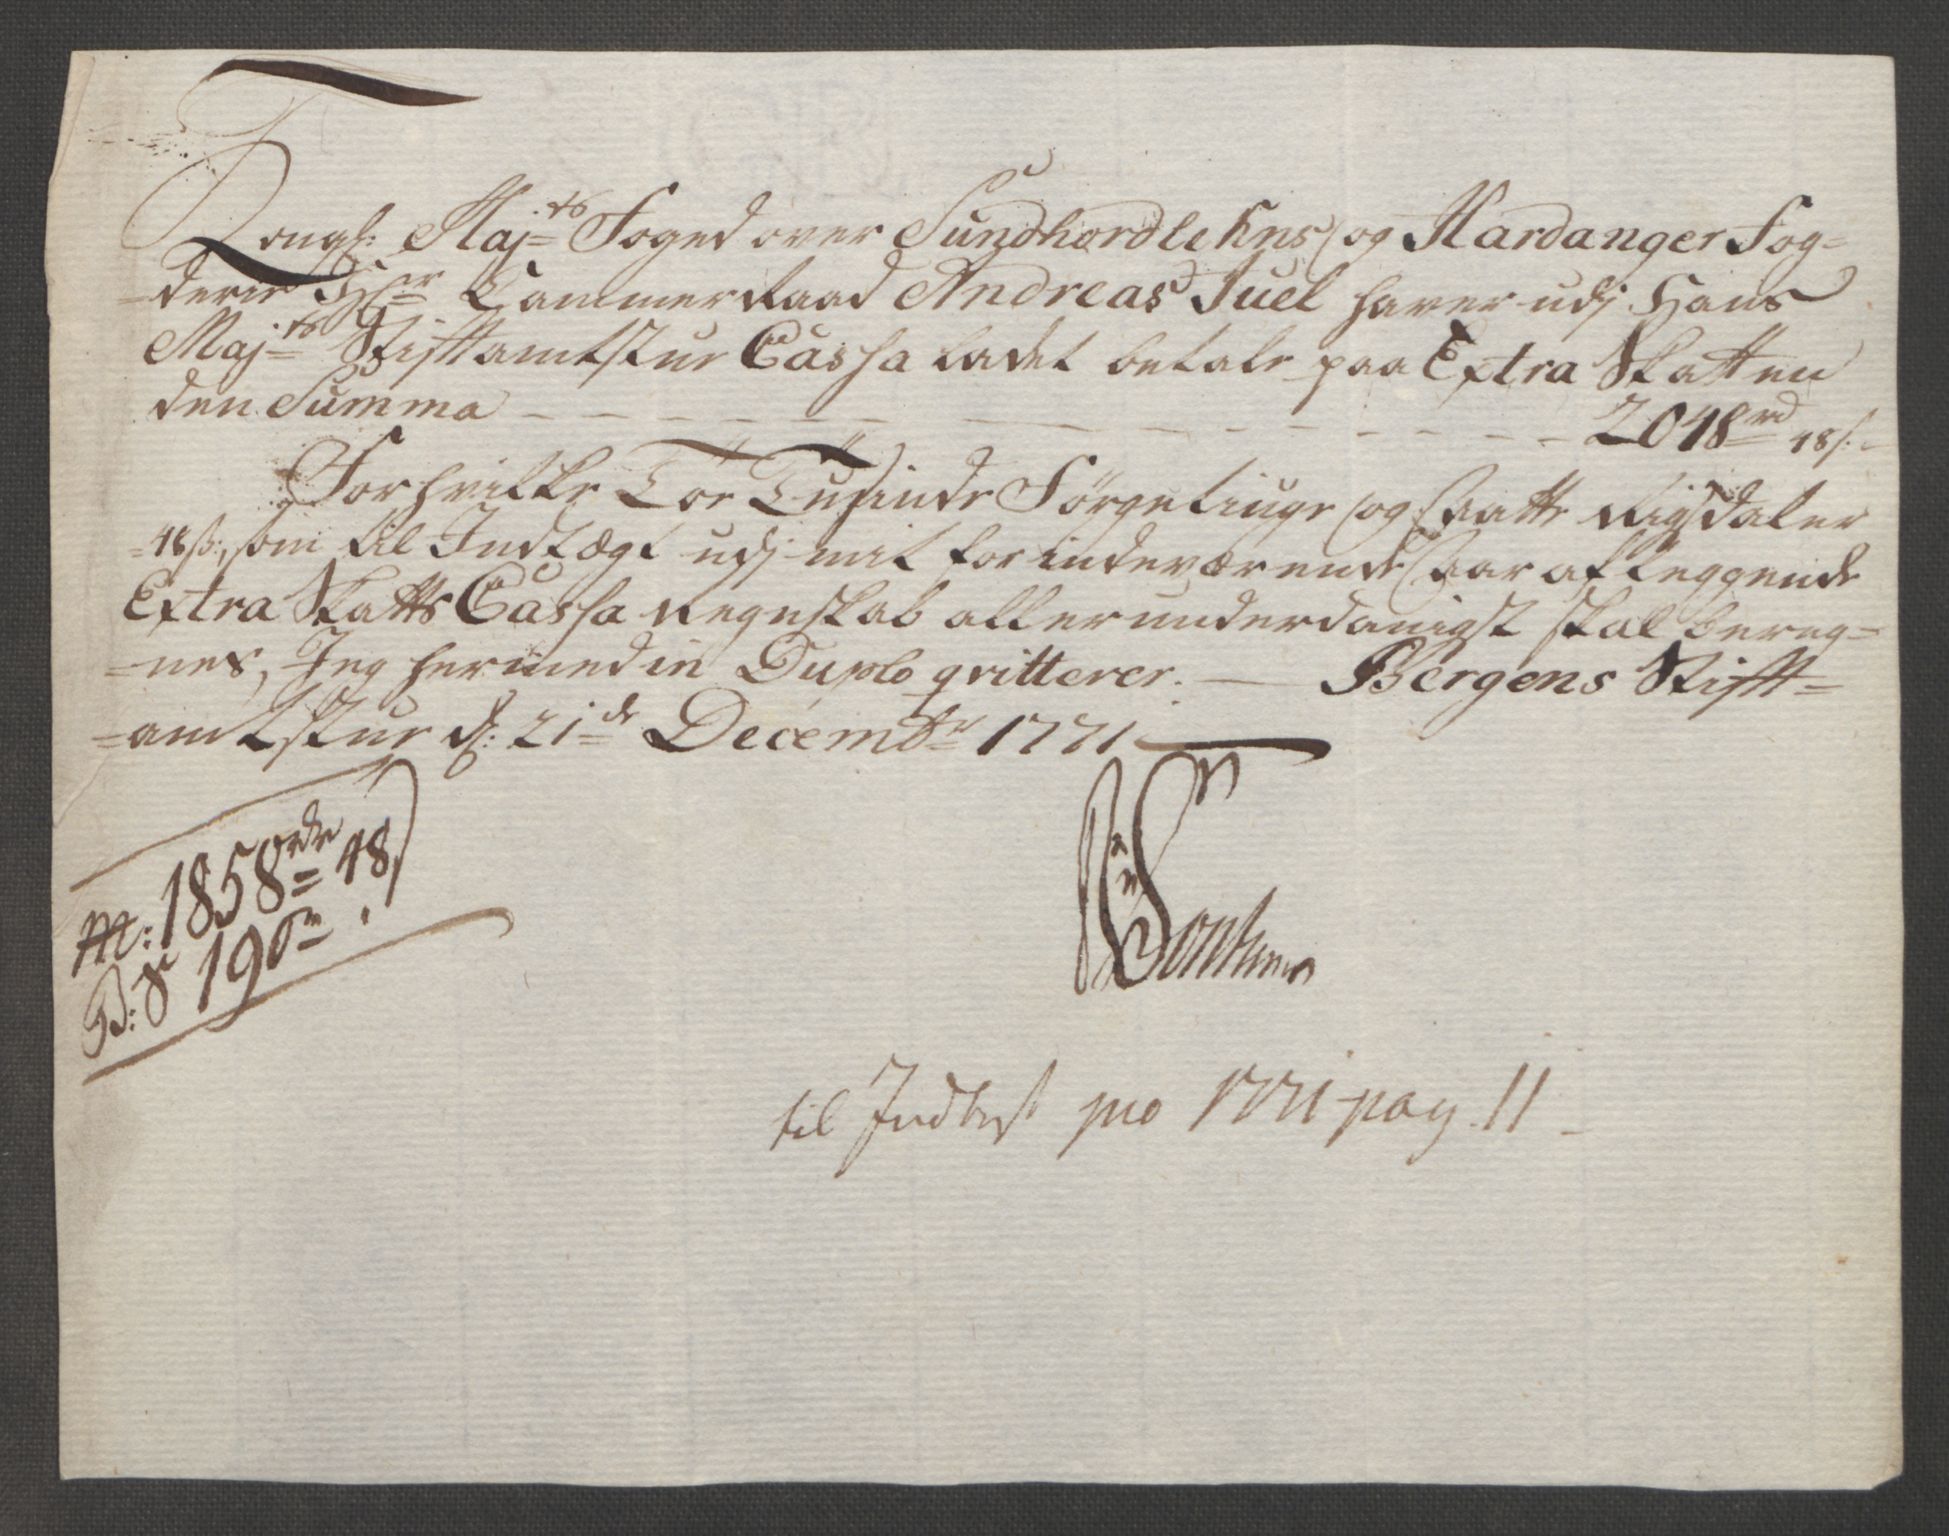 Kongl: Maj:ts Foged over Sundhordlehns og Hardanger Fog=
=derie Hr Cammer Raad Andreas Juel haver udj Hans
Maj:ts Stiftamtstue Cassa ladet betale paa Extra Skatten
den Summa - - - - - - - - - - - - 2048rd 48s:
For hvilke Toe Tusinde Förgetiuge og Aatte Rigsdaler
=48s:, som til Indtægt udj mit for indeværende Aar aflæggende
Extra Skatts Cassa Regnskab allerunderdanigst skal bereg=
=nes, Jeg hermed in Duplo qvitterer. — Bergens Stift=
=amtstue d: 21de Decembr 1771
m: 1858rdr 48s
B: Zr 190 .
til Indtægt pro 1771 pag. 11